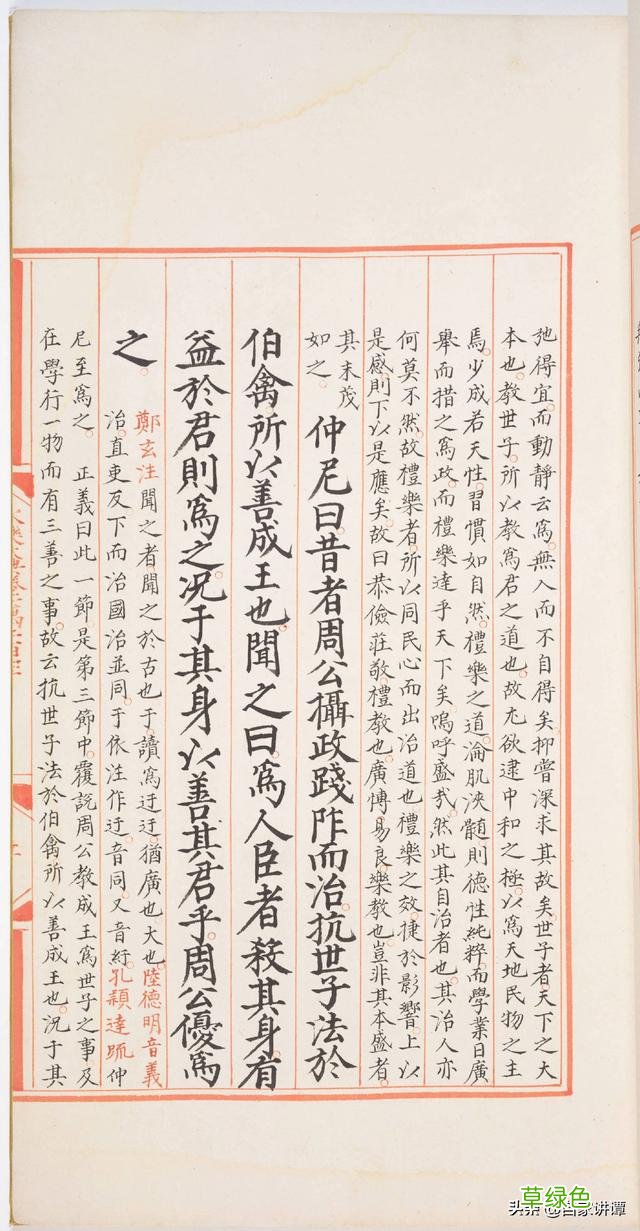 弛得宜而動靜云為無入而不自得矣抑嘗深求其故矣世子者天下之大
本也教世子所以教為君之道也故尤欲逮中和之極以為天地民物之主
焉少成若天性習慣如自然禮樂之道淪肌浹髓則德性純粹而學業日廣
舉而措之為政而禮樂達乎天下矣嗚呼盛哉然此其自治者也其治人亦
何莫不然故禮樂者所以同民心而出治道也禮樂之效捷於影響上以
是感則下以是應矣故曰恭儉莊敬禮教也廣博易良樂教也豈非其本盛者
其末茂
如之
仲尼曰昔者周公攝政踐阼而治抗世子法於
伯禽所以善成王也聞之曰為人臣者殺其身有
益於君則為之況于其身以善其君乎周公優為
之
鄭玄注聞之者聞之於古也于讀為迂迂猶廣也大也陸德明音義
治直吏反下而治國治並同于依注作迂音同又音紆孔穎達疏仲
尼至為之 正義曰此一節是第三節中覆說周公教成王為世子之事及
在學行一物而有三善之事故云抗世子法於伯禽所以善成王也況于其
草绿色
头条 @吕家讲谭